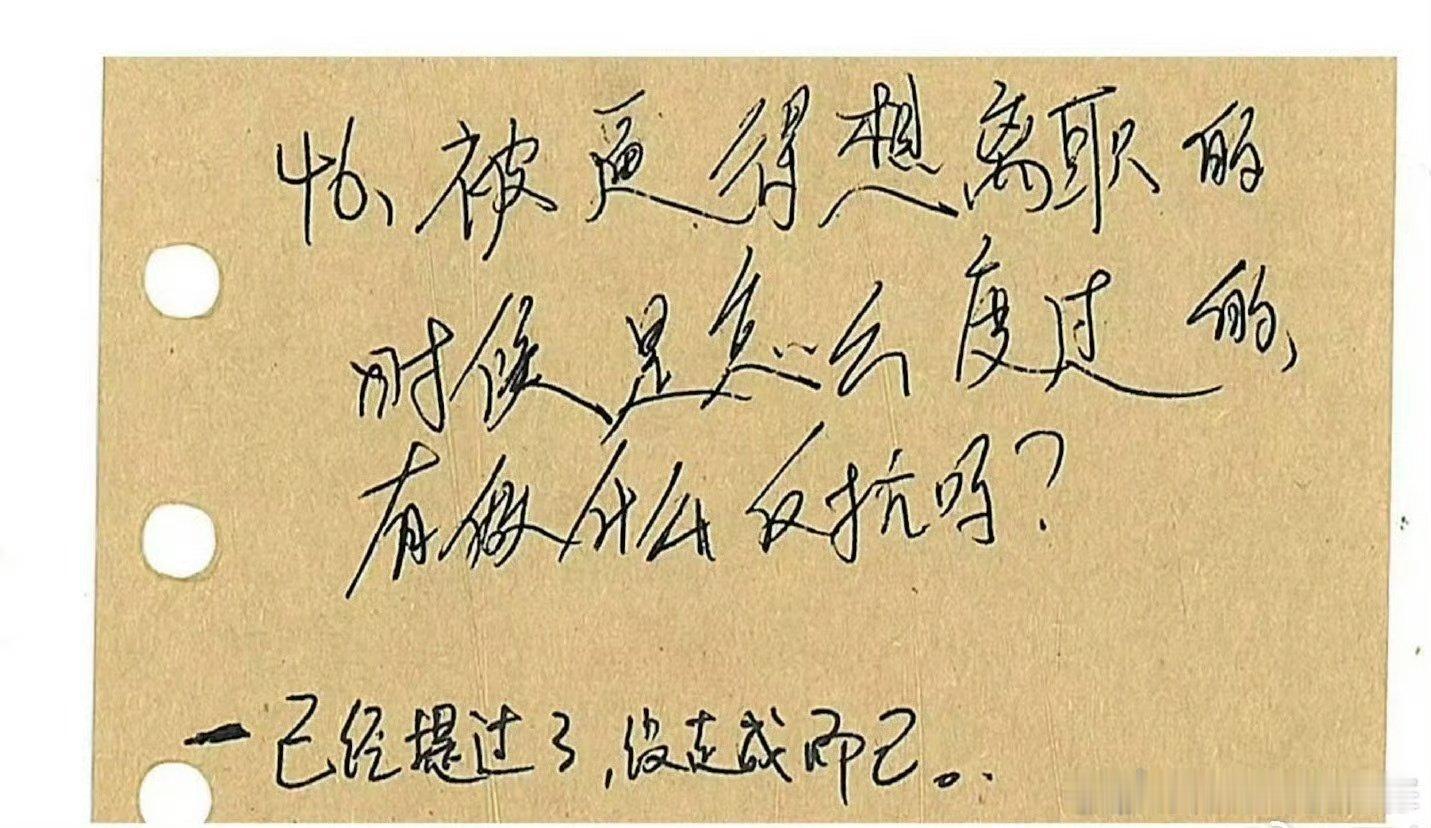 46、被逼得想离职的
时候是怎么度过的、
有做什么反抗吗？
一已经提过了，没走成而已。